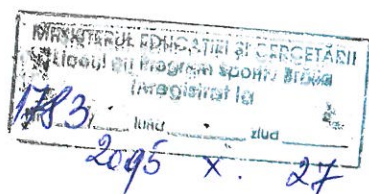 MINISTERUL EDUCAŢIEI ŞI CERCETĂRII
Liceul cu Program Sportiv
Înregistrat la
1783 luna ziua
x. 27